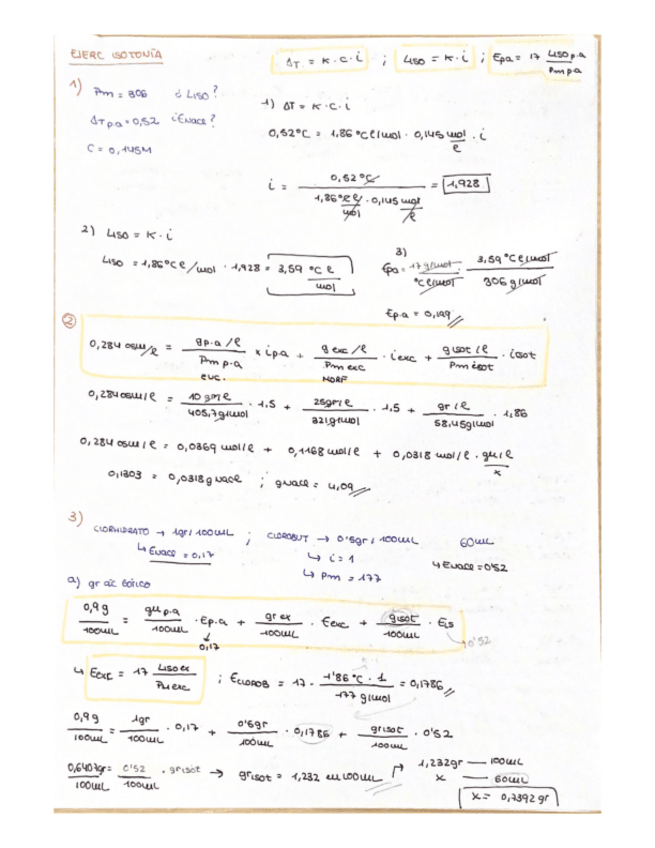 EJERC ISOTONÍA
ΔT = K·C·i ; LISO = K·i ; Epa = 17 LISO p.a / Pm p.a
1) Pm = 306 ¿LISO?
ΔTp.a = 0,52 ¿ENaCl?
C = 0,145M
1) ΔT = K·C·i
0,52ºC = 1,86ºC l/mol · 0,145 mol/l · i
i = 0,52ºC / 1,86ºC l/mol · 0,145 mol/l = 1,928
2) LISO = K·i
LISO = 1,86ºC l/mol · 1,928 = 3,59 ºC l/mol
3) Epa = 17 g/mol / ºC l/mol · 3,59ºC l/mol / 306 g/mol
Ep.a = 0,199
② 0,284 osm/l = gp.a/l / Pm p.a x ipa + g exc/l / Pm exc · iexc + gisot/l / Pm isot · iisot
EUC. MORF
0,284 osm/l = 10 gr/l / 405,7g/mol · 1.5 + 25gr/l / 321g/mol · 1.5 + gr/l / 58.45g/mol · 1,86
0,284 osm/l = 0,0369 mol/l + 0,1168 mol/l + 0,0318 mol/l · gr/l / x
0,1303 = 0,0318 g NaCl ; gNaCl = 4,09
3) CLORHIDRATO → 1gr/100mL ; CLOROBUT → 0'5gr/100mL 60mL
↳ ENaCl = 0,17 ↳ i = 1 ↳ ENaCl = 0'52
↳ Pm = 177
a) gr ác bórico
0,9 g / 100mL = gr p.a / 100mL · Ep.a + gr ex / 100mL · Eexc + gisot / 100mL · Eis
0,17 0'52
↳ Eexc = 17 LISO ex / Pm exc ; ECLOROB = 17 · 1'86ºC · 1 / 177 g/mol = 0,1786
0,9 g / 100mL = 1gr / 100mL · 0,17 + 0'5gr / 100mL · 0,1786 + grisot / 100mL · 0'52
0,6407gr / 100mL = 0'52 / 100mL · grisot → grisot = 1,232 en 100mL
1,232gr — 100mL
x — 60mL
x = 0,7392 gr